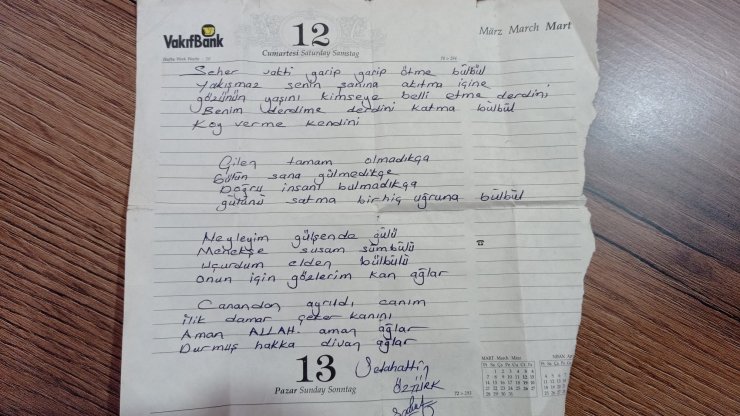 VakıfBank
12
Cumartesi Saturday Samstag
März March Mart
72 + 294
Seher vakti garip garip ötme bülbül
Yakışmaz senin şanına akıtma içine
gözünün yaşını kimseye belli etme derdini
Benim derdime derdini katma bülbül
Koy verme kendini
Çilen tamam olmadıkça
Gülün sana gülmedikçe
Doğru insanı bulmadıkça
gülünü satma bir hiç uğruna bülbül
Neyleyim gülşende gülü
Menekşe susam sümbülü
Uçurdum elden bülbülü
Onun için gözlerim kan ağlar
Canandan ayrıldı canım
ilik damar çeker kanını
Aman ALLAH. aman ağlar
Durmuş hakka divan ağlar
13
Pazar Sunday Sonntag
Selahattin
ÖZTÜRK
72 + 293
MART March März